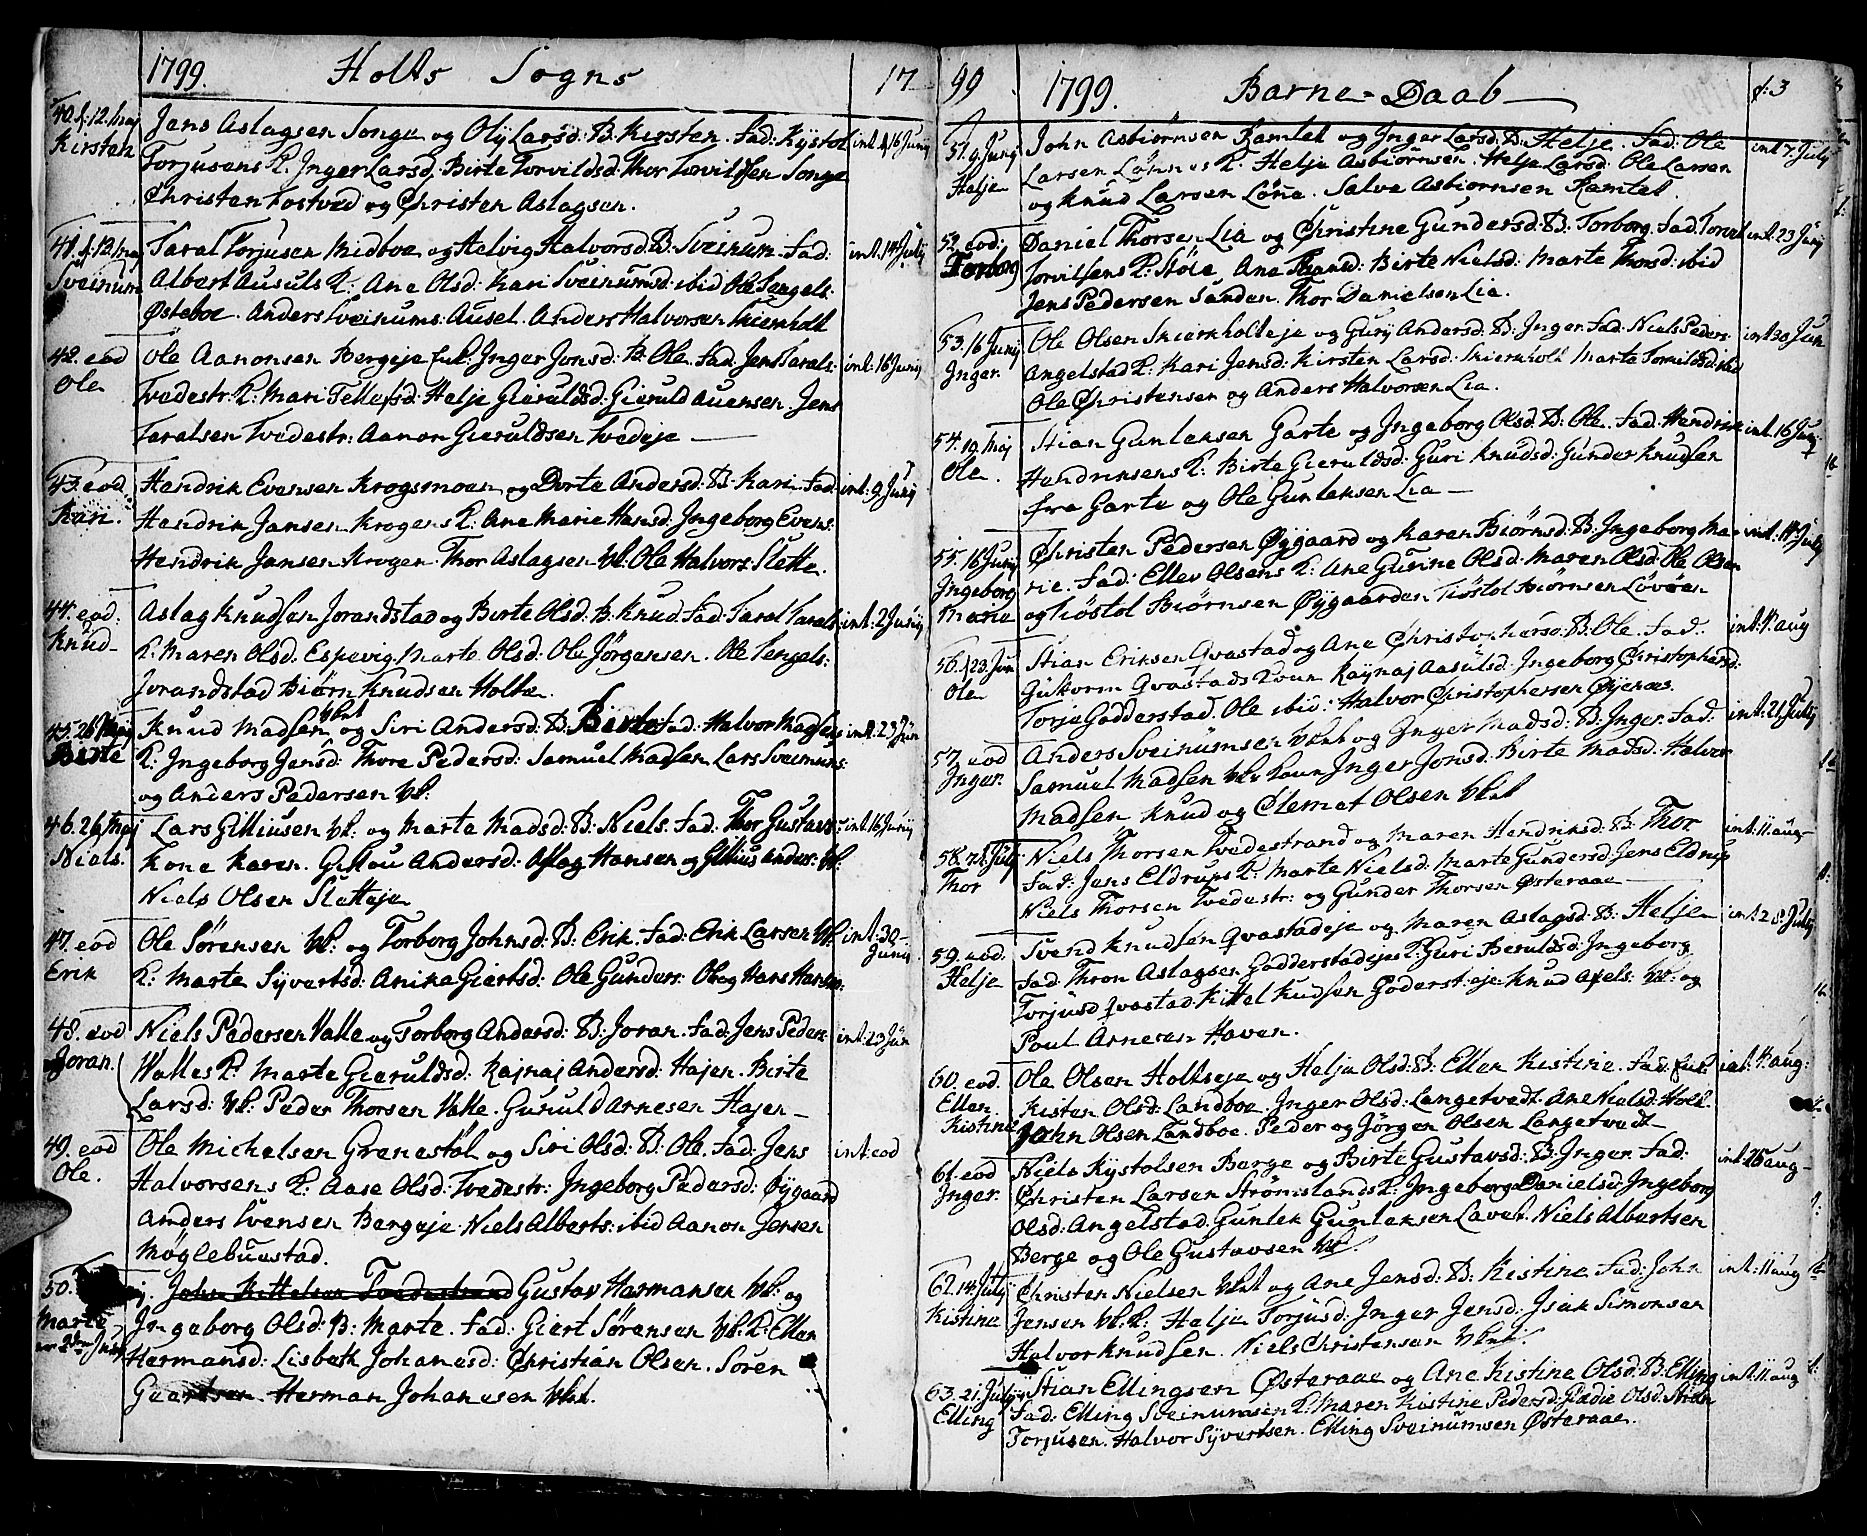 1799. Holts Sogns 17
40. f. 12. maj Jens Aslagsen Songe og Oly Larsd: B: Kirsten. Fad: Kystol int. 16 Junij
Kirsten Torjusens K: Inger Larsd. Birte Torvildsd: Thor Torvildsen Songe
Christen Fostved og Christen Aslagsen.
41. f. 12. maj Taral Torjusen Midboe og Helvig Halvorsd: B: Sveinum. Fad: int. 14 July
Sveinum Albert Ausuls K: Ane Olsd: Kari Sveinumsd: ibid Ole
Østeboe. Anders Sveinums: Ausel. Anders Halvorsen Skiernholt
42. eod Ole Aanonsen Bergeje Inger Jonsd: B: Ole. Fad: Jens Tarals: int: 16 Junij
Ole Tvedestr: K: Mari Tellefsd: Helje Gieruldsd: Gieruld Auensen. Jens
Taralsen Tvedestr: Aanon Gieruldsen Tvedeje
43. eod. Hendrik Evensen Krogsmoen og Dorte Andersd: B: Kari. Fad: int: 9 Junij
Kari. Hendrik Jansen Krogens K: Ane Marie Hansd: Ingeborg Evens:
Hendrik Jansen Krogen. Thor Aslagsen Vb: Ole Halvors: Slette.
44. eod. Aslag Knudsen Jorandstad og Birte Olsd: B: Knud. Fad: Taral Tarals: int. 2 Junij
Knud K: Maren Olsd: Espevig. Marte Olsd: Ole Jörgensen. Ole Tengels:
Jorandstad Biörn Knudsen Holte.
45. 26 Maij Knud Madsen Vbnt og Siri Andersd: B: Berte Fad: Halvor Madsens int. 23 Jun
Birte K: Ingeborg Jensd: Thore Pedersd: Samuel Madsen Lars Sveinums:
og Anders Pedersen Vb:
46. 26 Maj Lars Gilliusen Vb: og Marte Madsd: B: Niels. Fad: Thor Gustavs: int. 16 Junij
Niels. Kone Karen. Andersd: Aslag Hansen og Gillius Anders: Vb:
Niels Olsen Sletteje
47. eod Ole Sörensen Vb: og Torborg Johnsd: B: Erik. Fad: Erik Larsen Vb. int: 30 Junij
Erik K: Marte Syvertsd: Anika Giertsd: Ole Gunders: Ole og Hans Hansen:
48. eod Niels Pedersen Valle og Torborg Andersd: B: Joran. Fad: Jens Peders: int. 23 Jun
Joran. Walles K: Marte Gieruldsd: Rajnaj Andersd: Hajen. Birte
Larsd: Vb: Peder Thorsen Valle. Guruld Arnesen Hajen
49. eod Ole Michelsen Grenestöl og Siri Olsd: B: Ole. Fad: Jens int: eod
Ole. Halvorsens K: Aase Olsd: Tvedestr: Ingeborg Pedersd: Øygaard
Anders Svensen Bergeje. Niels Alberts: ibid Aanon Jensen
Möglebuestad.
50. John Kittelsen Tvedestrand Gustav Harmansen Vb: og
Marte Ingeborg Olsd: B: Marte. Fad: Giert Sörensen Vb: K: Ellen
Hermansd: Lisbeth Johanesd: Christian Olsen. Sören
Geertsen. Herman Johanesen Vbnt.
99 1799. Barne-Daab f: 3
51. 9 Junij John Asbiörnsen Ramtet og Inger Larsd: B: Helje. Fad: Ole int 7. July
Helje Larsen Lönnes K: Helje Asbiörnsen. Helje Larsd: Ole Larsen
og Knud Larsen Löne. Salve Asbiörnsen Ramtet.
52. eod. Daniel Thorsen Lia og Christine Gundersd: B: Torborg. Fad: Torvil int. 23 Junij
Torborg Torvilsens K: Ane Birte Nielsd: Marte Thorsd: ibid
Jens Pedersen Sanden. Thor Danielsen Lia.
53. 16 Junij Ole Olsen Skiernholteje og Gury Andersd: B: Inger. Fad: Niels Peders: int 30 Jun
Inger. Angelstad K: Kari Jensd: Kirsten Larsd: Skiernholt Marte Torvildsd: ibid
Ole Christensen og Anders Halvorsen Lia.
54. 19. Maj Stian Gunleksen Garte og Ingeborg Olsd: B: Ole. Fad: Hendrik int. 16 Junij
Ole. Hendriksens K: Birte Gieruldsd: Guri Knudsd: Gunder Knudsen
fra Garte og Ole Gunleksen Lia
55. 16 Junij Christen Pedersen Øygaard og Karen Biörnsd: B: Ingeborg Ma- int. 14 July
Ingeborg rie. Fad: Ellev Olsens K: Ane Gurine Olsd: Maren Olsd: Ole Olsen
Marie og Tiöstol Biörnsen Øygaarden Tiöstol Biörnsen Lövöen
56. 23. Jun Stian Eriksen Qvastad og Ane Christophersd: B: Ole. Fad: int. 4 aug
Ole Guttorm Qvastads Koun Raynaj Aasulsd: Ingeborg Christophersd:
Torje Godderstad. Ole ibid: Halvor Christophersen Øyenæs.
57. eod Anders Sveinumsen Vbnt og Inger Madsd: B: Inger. Fad: int. 21 July
Inger. Samuel Madsen Vbs Koun Inger Jonsd: Birte Madsd: Halvor
Madsen Knud og Clemet Olsen Vbnt
58. 21. July Niels Thorsen Tvedestrand og Maren Hendriksd: B: Thor int. 11 aug
Thor Fad: Jens Eldrups K: Marte Nielsd: Marte Gundersd: Jens Eldrup
Niels Thorsen Tvedestr: og Gunder Thorsen Østeraae
59. eod. Svend Knudsen Qvastadeje og Maren Aslagsd: B: Helje int 28 July
Helje Fad: Thron Aslagsen Godderstadejes K: Guri Beruldsd: Ingeborg
Torjusd Qvastad. Kittel Knudsen Goderst:eje Knud Axels: Vb: og
Poul Arnesen Haven.
60. eod. Ole Olsen Holtseje og Helje Olsd: B: Ellen Kistine. Fad: int. 4 aug:
Ellen Kisten Olsd: Landboe. Inger Olsd: Langetvedt. Ane Nielsd: Holt.
Kistine John Olsen Landboe. Peder og Jörgen Olsen Langetvedt
61. eod Niels Kystolsen Berge og Birte Gustavsd: B: Inger. Fad: int. 25 aug
Inger. Christen Larsen Strömslands K: Ingeborg Danielsd: Ingeborg
Olsd: Angelstad. Gunlek Gunleksen Lavet. Niels Albertsen
Berge og Ole Gustavsen Vb
62. 14. July Christen Nielsen Vbnt og Ane Jensd: B: Kistine Fad: John int: 11 aug
Kistine Jensen Vb: K: Helje Torjusd: Inger Jensd: Isak Simonsen
Halvor Knudsen. Niels Christensen Vbnt.
63. 21. July Stian Ellingsen Østeraae og Ane Kistine Olsd: B: Elling int. 11 aug
Elling Fad: Elling Sveinumsen K: Maren Kistine Pedersd: Olsd: Stian
Torjusen. Halvor Syvertsen. Elling Sveinumsen Østeraae.